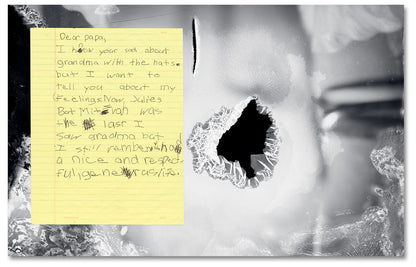 Dear papa,
I know your sad about
grandma with the hats.
but I want to
tell you about my
feelings Now, Julies
Bat Mitzvah was
the last I
saw gradma but
I still rember who
a nice and respect-
ful, generas life.